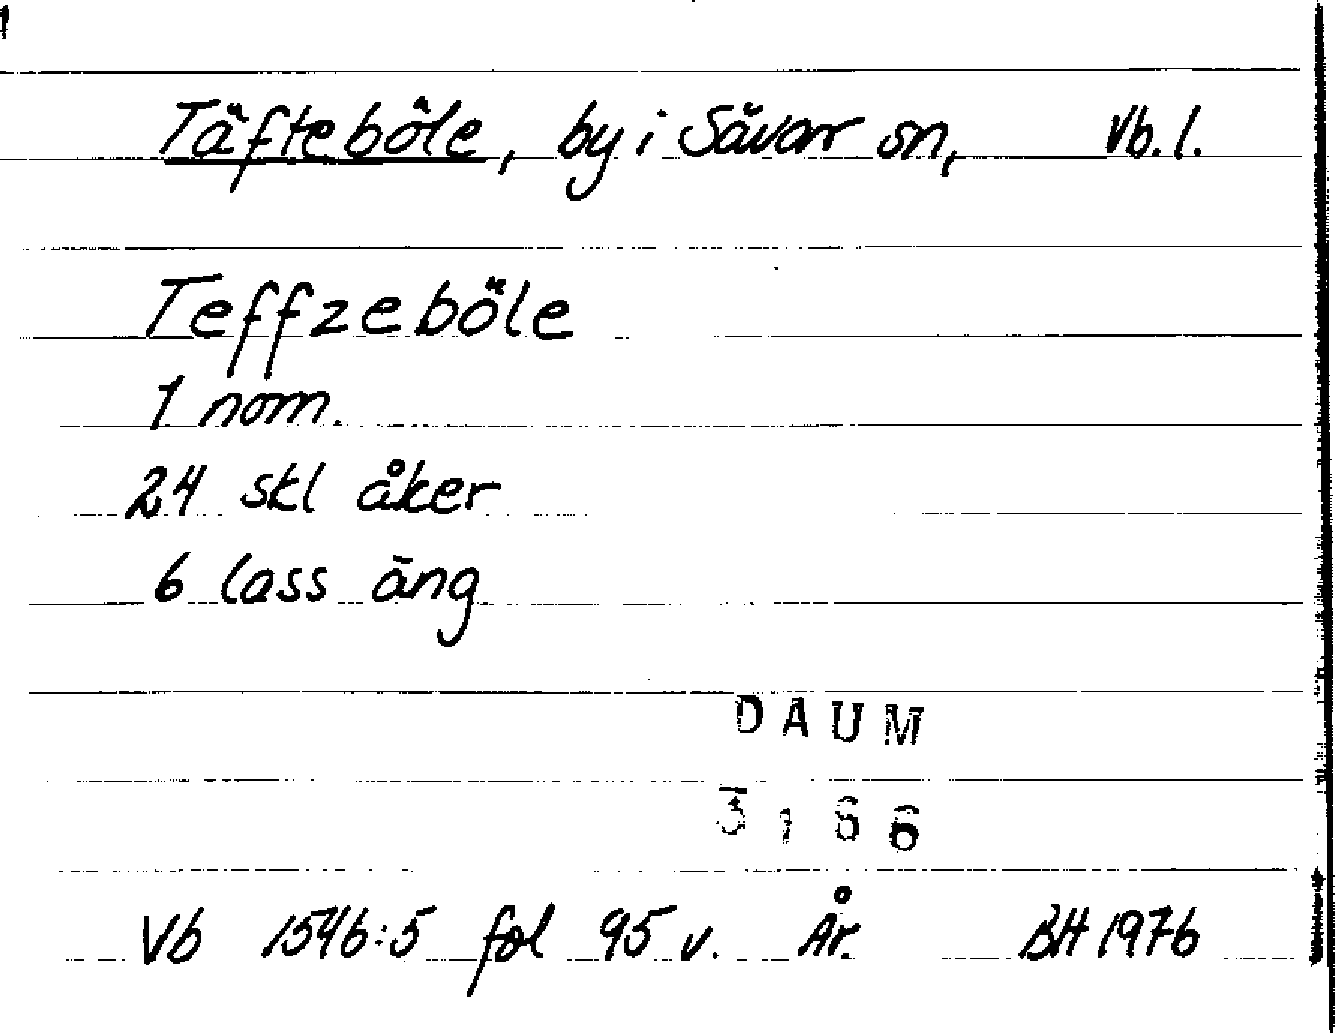 Täfteböle, by i Sävar sn, Vb. l.
Teffzeböle
1 nom.
24 skl åker
6 lass äng
DAUM
3166
Vb 1546:5 fol 95 v. År. BH 1976